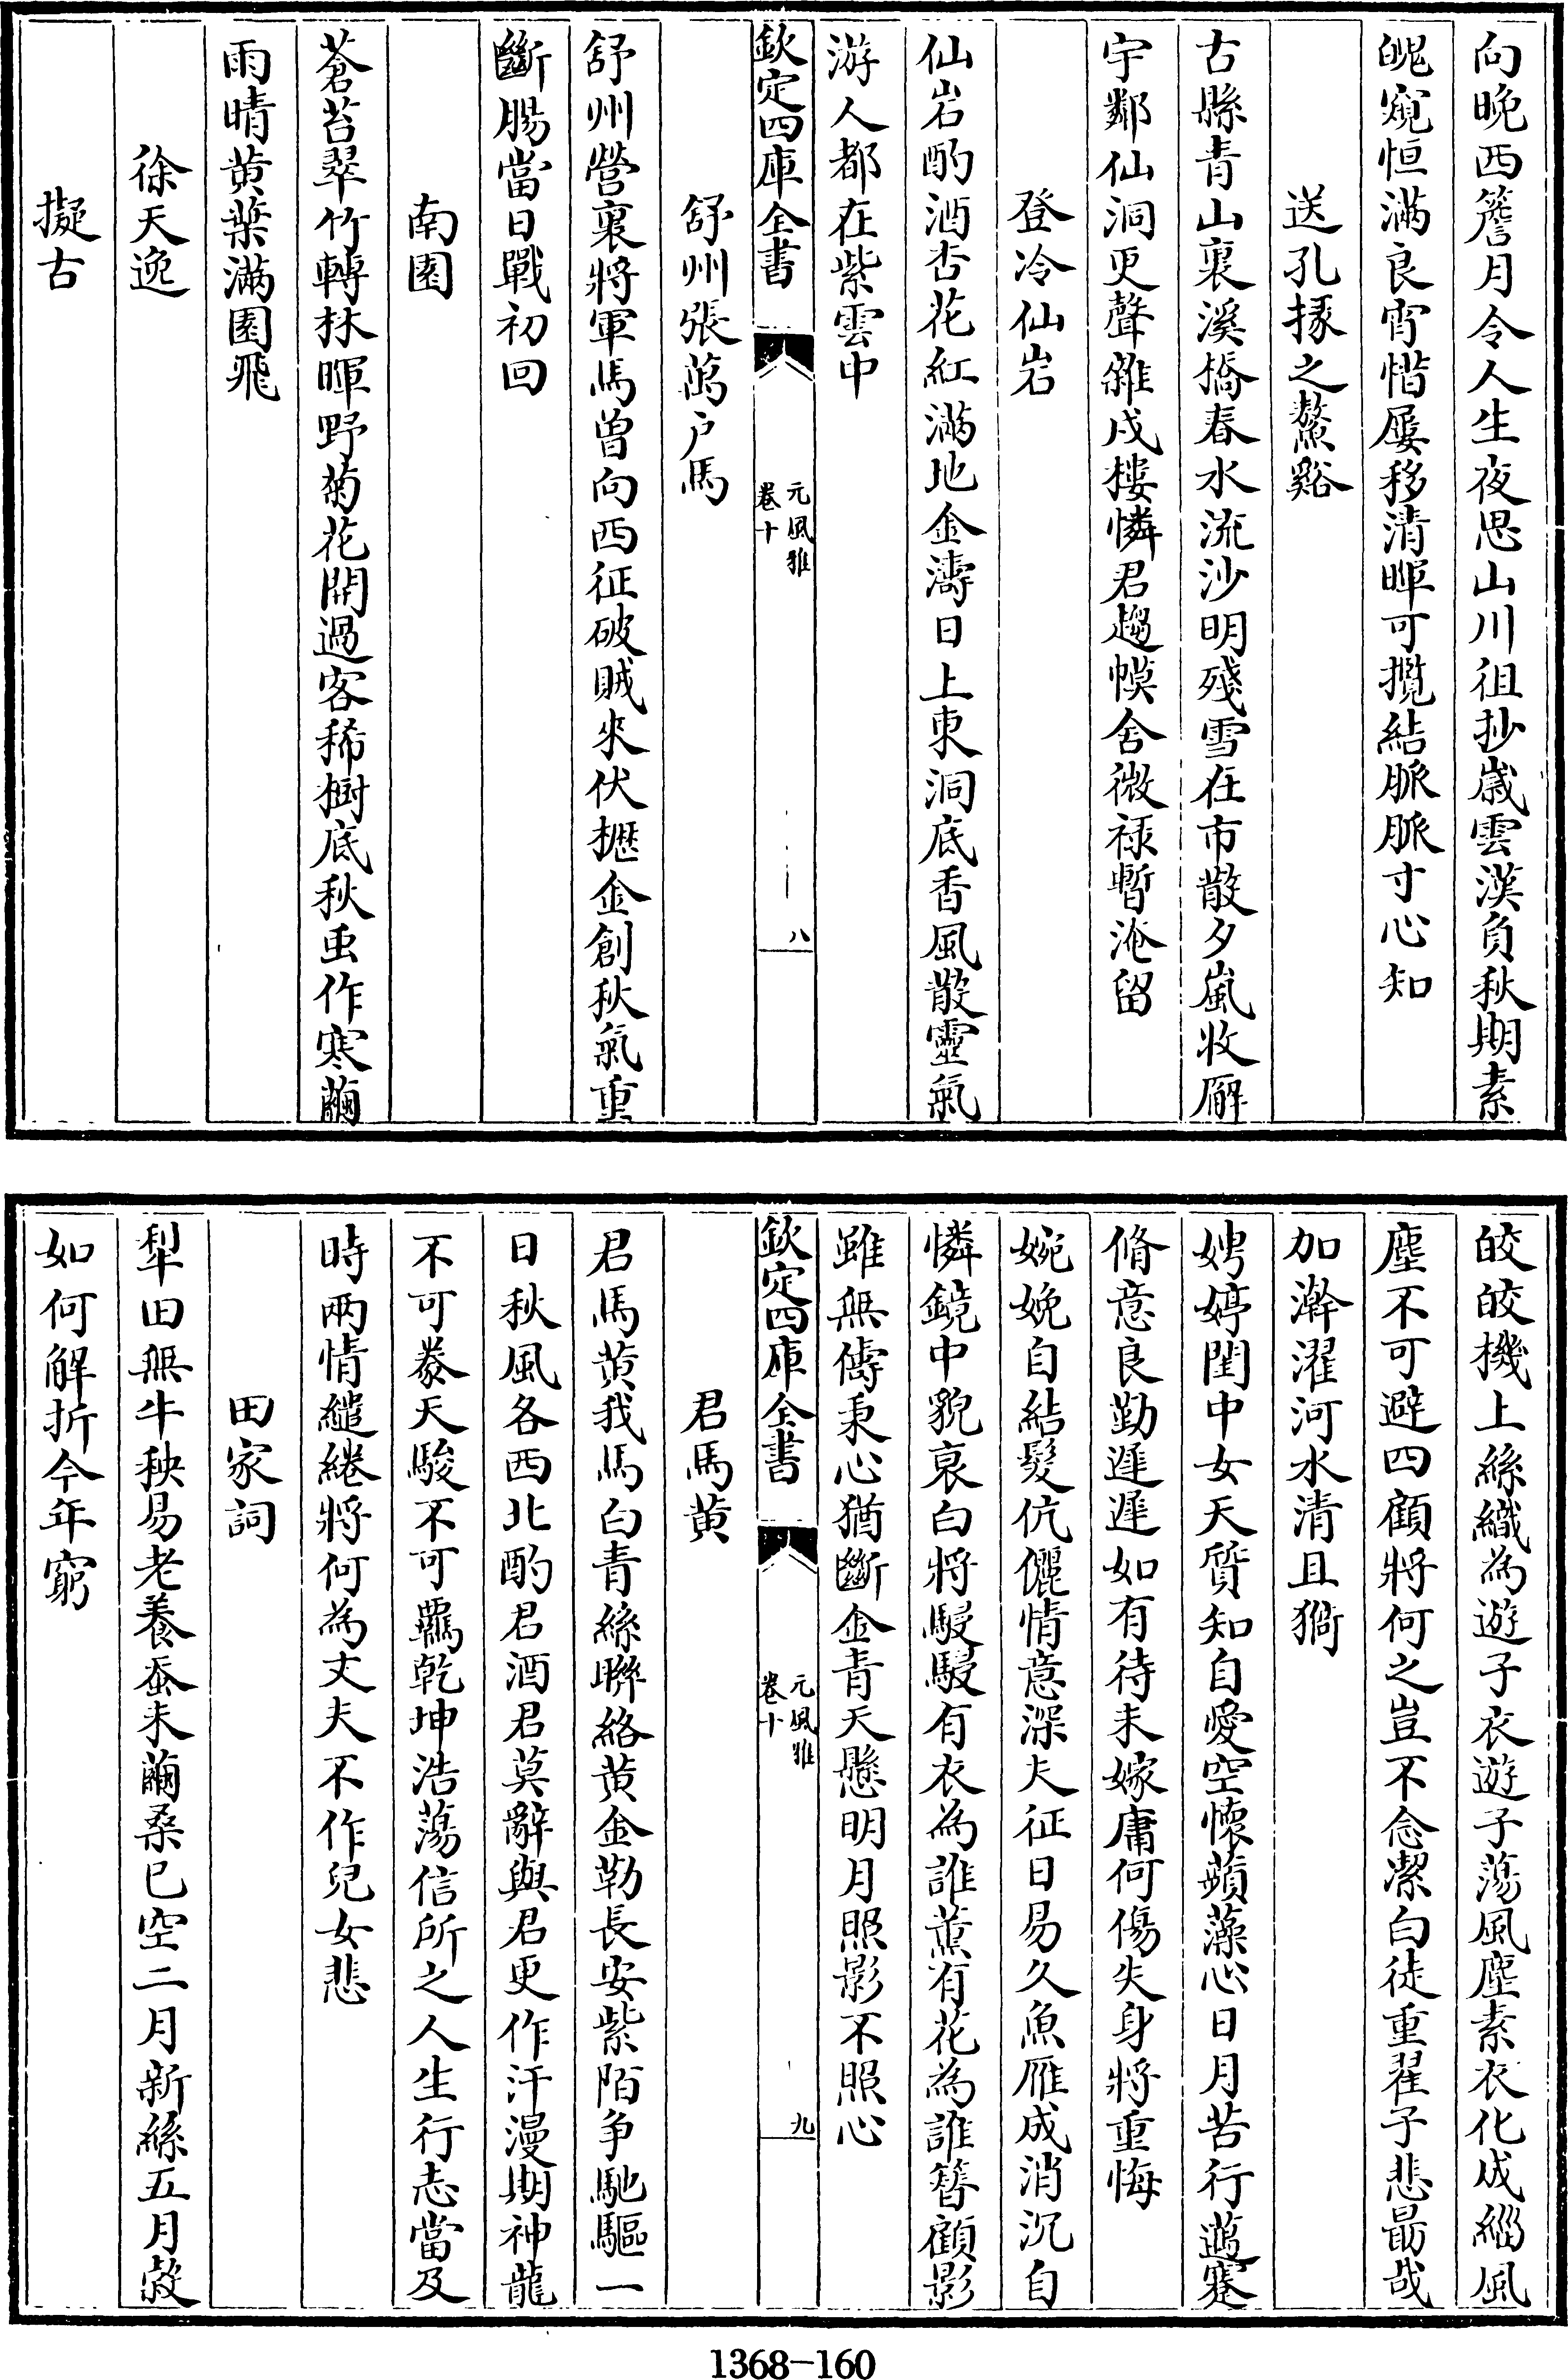 向晚西簷月令人生夜思山川徂抄歲雲漢負秋期素
魄窺恒滿良宵惜屢移清暉可攬結脈脈寸心知
送孔掾之鰲谿
古縣青山裏溪橋春水流沙明殘雪在市散夕嵐收廨
宇鄰仙洞更聲雜戍樓憐君趨幙舍微祿暫淹留
登冷仙岩
仙岩酌酒杏花紅滿地金濤日上東洞底香風散靈氣
游人都在紫雲中
欽定四庫全書
元風雅
卷十
八
舒州張萬户馬
舒州營裏將軍馬曾向西征破賊來伏櫪金創秋氣重
斷腸當日戰初回
南園
蒼苔翠竹轉林暉野菊花開過客稀樹底秋虫作寒繭
雨晴黄葉滿園飛
徐天逸
擬古
皎皎機上絲織為遊子衣遊子蕩風塵素衣化成緇風
塵不可避四顧將何之豈不念潔白徒重翟子悲曷哉
加澣濯河水清且猗
娉婷閨中女天質知自愛空懷蘋藻心日月苦行邁蹇
脩意良勤遲遲如有待未嫁庸何傷失身將重悔
婉娩自結髮伉儷情意深夫征日易久魚雁成消沉自
憐鏡中貌哀白將駸駸有衣為誰薰有花為誰簪顧影
雖無儔秉心猶斷金青天懸明月照影不照心
欽定四庫全書
元風雅
卷十
九
君馬黄
君馬黄我馬白青絲聯絡黄金勒長安紫陌争馳驅一
日秋風各西北酌君酒君莫辭與君更作汗漫期神龍
不可豢天駿不可羈乾坤浩蕩信所之人生行志當及
時兩情繾綣將何為丈夫不作兒女悲
田家詞
犁田無牛秧易老養蚕未繭桑已空二月新絲五月穀
如何解折今年窮
1368-160